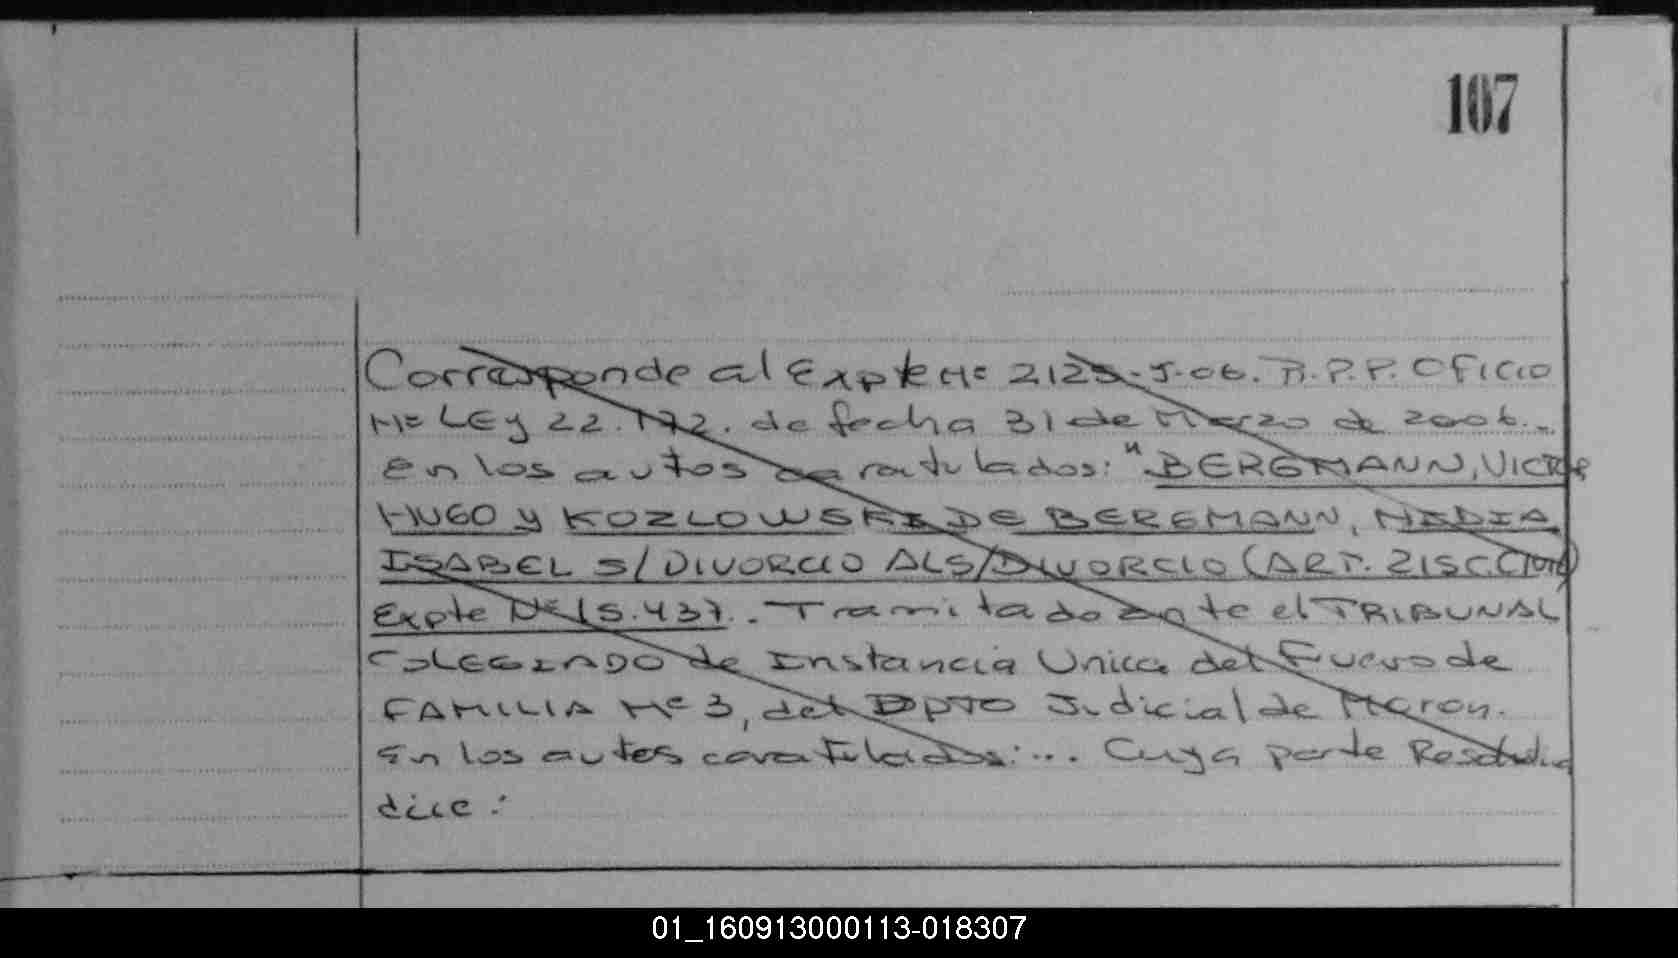 107
Corresponde al Expte Nº 2125-J-06. R.P.P. Oficio
Nº LEy 22.172. de fecha 31 de Marzo de 2006..
En los autos caratulados: "BERGMANN, VICTOR
HUGO y KOZLOWSKI DE BERGMANN, NADIA
ISABEL S/DIVORCIO ALS/DIVORCIO (ART. 215 C.Civil)
Expte Nº 15.437.. Tramitado ante el TRIBUNAL
COLEGIADO de Instancia Unica del Fuero de
FAMILIA Nº 3, del DPTO Judicial de Moron.
En los autos caratulados:... Cuya parte Resolutiva
dice:
01_160913000113-018307